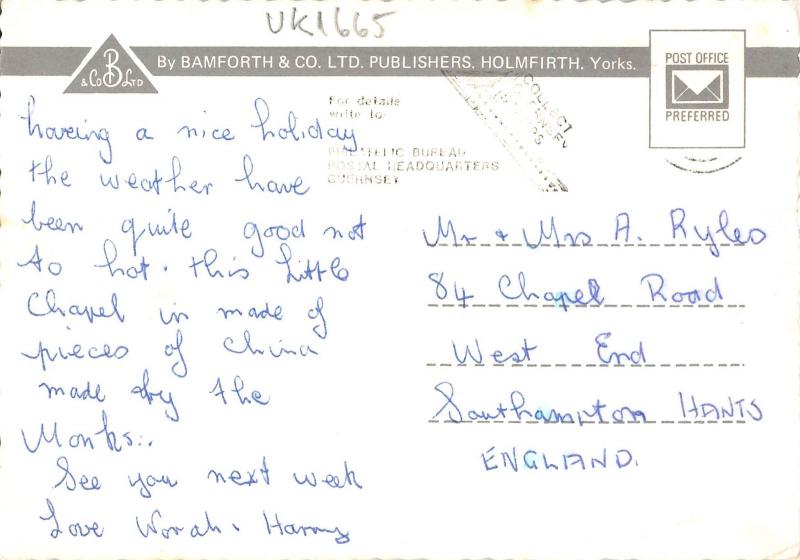 UK1665
B
& Co LTD
By BAMFORTH & CO. LTD. PUBLISHERS. HOLMFIRTH. Yorks.
POST OFFICE
PREFERRED
For details
write to
PHILATELIC BUREAU
POSTAL HEADQUARTERS
GUERNSEY
COLLECT
GUERNSEY
haveing a nice holiday
the weather have
been quite good not
to hot. this Little
Chapel is made of
pieces of China
made by the
Monks..
See you next week
Love Worah. Harry
Mr + Mrs A. Ryles
84 Chapel Road
West End
Southampton HANTS
ENGLAND.